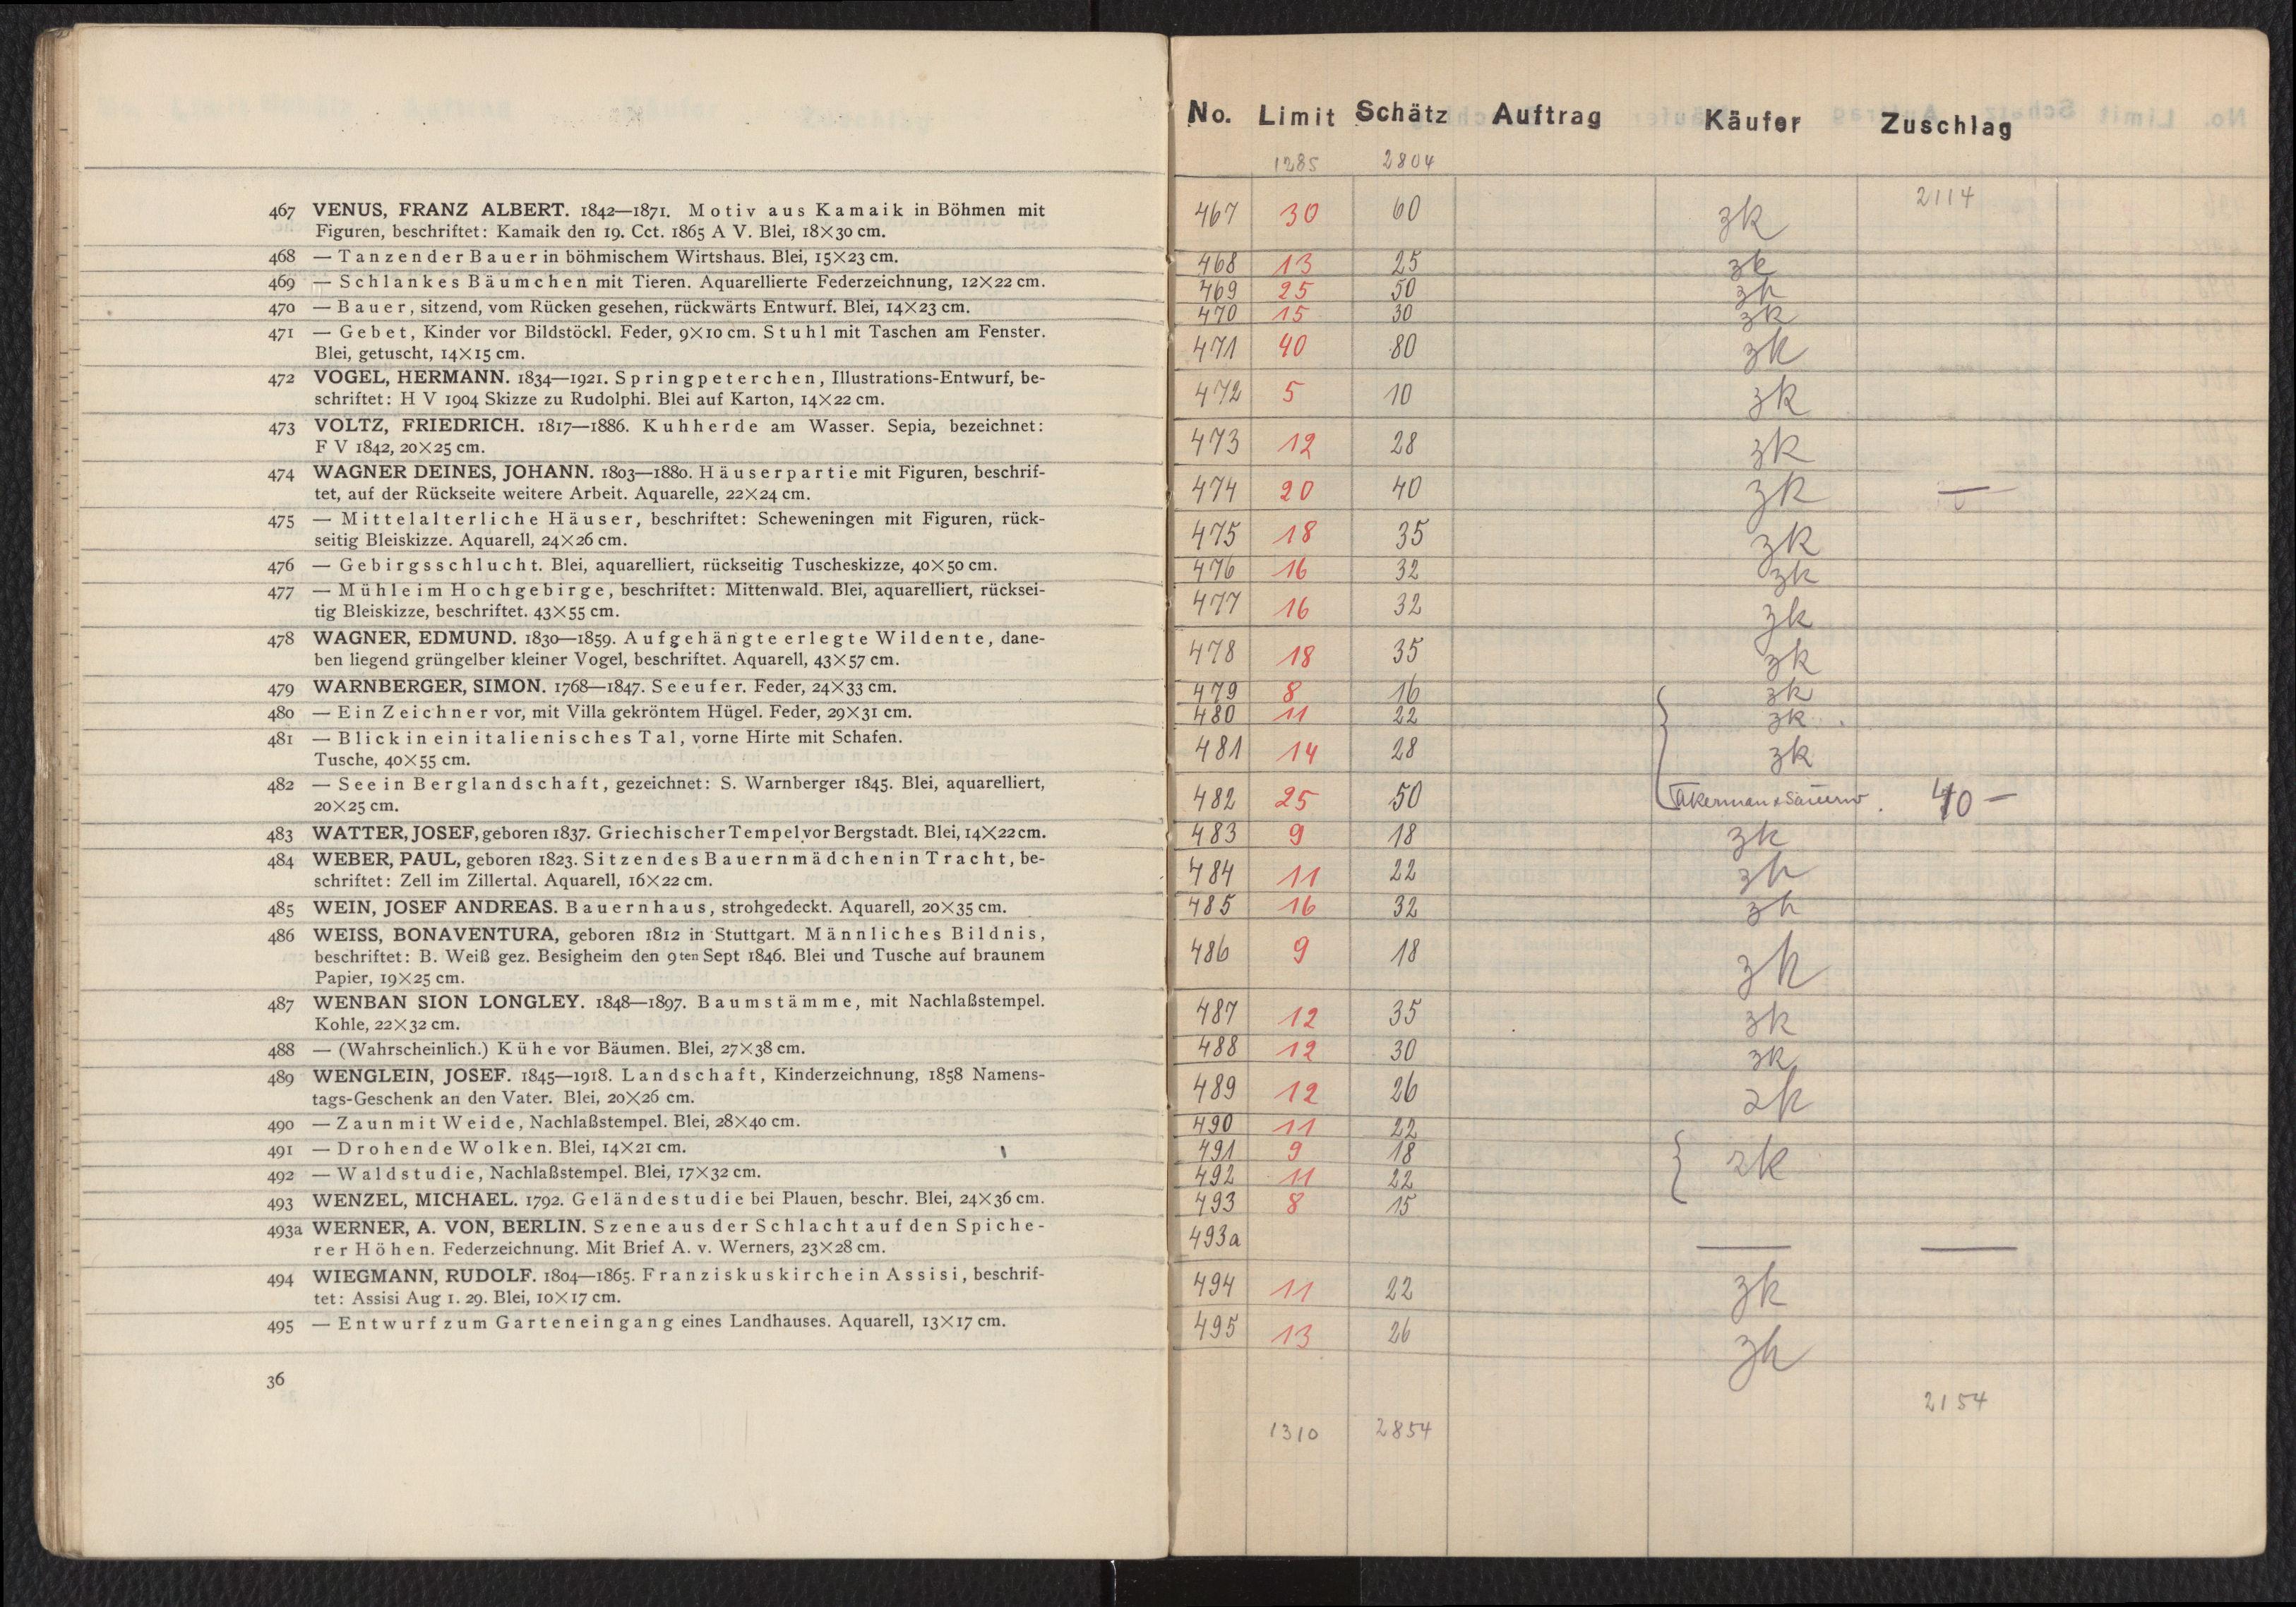 467 VENUS, FRANZ ALBERT. 1842—1871. Motiv aus Kamaik in Böhmen mit
Figuren, beschriftet: Kamaik den 19. Cct. 1865 A V. Blei, 18×30 cm.
468 — Tanzender Bauer in böhmischem Wirtshaus. Blei, 15×23 cm.
469 — Schlankes Bäumchen mit Tieren. Aquarellierte Federzeichnung, 12×22 cm.
470 — Bauer, sitzend, vom Rücken gesehen, rückwärts Entwurf. Blei, 14×23 cm.
471 — Gebet, Kinder vor Bildstöckl. Feder, 9×10 cm. Stuhl mit Taschen am Fenster.
Blei, getuscht, 14×15 cm.
472 VOGEL, HERMANN. 1834—1921. Springpeterchen, Illustrations-Entwurf, be-
schriftet: H V 1904 Skizze zu Rudolphi. Blei auf Karton, 14×22 cm.
473 VOLTZ, FRIEDRICH. 1817—1886. Kuhherde am Wasser. Sepia, bezeichnet:
F V 1842, 20×25 cm.
474 WAGNER DEINES, JOHANN. 1803—1880. Häuserpartie mit Figuren, beschrif-
tet, auf der Rückseite weitere Arbeit. Aquarelle, 22×24 cm.
475 — Mittelalterliche Häuser, beschriftet: Scheweningen mit Figuren, rück-
seitig Bleiskizze. Aquarell, 24×26 cm.
476 — Gebirgsschlucht. Blei, aquarelliert, rückseitig Tuscheskizze, 40×50 cm.
477 — Mühle im Hochgebirge, beschriftet: Mittenwald. Blei, aquarelliert, rücksei-
tig Bleiskizze, beschriftet. 43×55 cm.
478 WAGNER, EDMUND. 1830—1859. Aufgehängte erlegte Wildente, dane-
ben liegend grüngelber kleiner Vogel, beschriftet. Aquarell, 43×57 cm.
479 WARNBERGER, SIMON. 1768—1847. Seeufer. Feder, 24×33 cm.
480 — Ein Zeichner vor, mit Villa gekröntem Hügel. Feder, 29×31 cm.
481 — Blick in ein italienisches Tal, vorne Hirte mit Schafen.
Tusche, 40×55 cm.
482 — See in Berglandschaft, gezeichnet: S. Warnberger 1845. Blei, aquarelliert,
20×25 cm.
483 WATTER, JOSEF, geboren 1837. Griechischer Tempel vor Bergstadt. Blei, 14×22 cm.
484 WEBER, PAUL, geboren 1823. Sitzendes Bauernmädchen in Tracht, be-
schriftet: Zell im Zillertal. Aquarell, 16×22 cm.
485 WEIN, JOSEF ANDREAS. Bauernhaus, strohgedeckt. Aquarell, 20×35 cm.
486 WEISS, BONAVENTURA, geboren 1812 in Stuttgart. Männliches Bildnis,
beschriftet: B. Weiß gez. Besigheim den 9ten Sept 1846. Blei und Tusche auf braunem
Papier, 19×25 cm.
487 WENBAN SION LONGLEY. 1848—1897. Baumstämme, mit Nachlaßstempel.
Kohle, 22×32 cm.
488 — (Wahrscheinlich.) Kühe vor Bäumen. Blei, 27×38 cm.
489 WENGLEIN, JOSEF. 1845—1918. Landschaft, Kinderzeichnung, 1858 Namens-
tags-Geschenk an den Vater. Blei, 20×26 cm.
490 — Zaun mit Weide, Nachlaßstempel. Blei, 28×40 cm.
491 — Drohende Wolken. Blei, 14×21 cm.
492 — Waldstudie, Nachlaßstempel. Blei, 17×32 cm.
493 WENZEL, MICHAEL. 1792. Geländestudie bei Plauen, beschr. Blei, 24×36 cm.
493a WERNER, A. VON, BERLIN. Szene aus der Schlacht auf den Spiche-
rer Höhen. Federzeichnung. Mit Brief A. v. Werners, 23×28 cm.
494 WIEGMANN, RUDOLF. 1804—1865. Franziskuskirche in Assisi, beschrif-
tet: Assisi Aug 1. 29. Blei, 10×17 cm.
495 — Entwurf zum Garteneingang eines Landhauses. Aquarell, 13×17 cm.
36
No. Limit Schätz Auftrag Käufer Zuschlag
1285 2804
2114
467 30 60 zk
468 13 25 zk
469 25 50 zk
470 15 30 zk
471 40 80 zk
472 5 10 zk
473 12 28 zk
474 20 40 zk —
475 18 35 zk
476 16 32 zk
477 16 32 zk
478 18 35 zk
479 8 16 zk
480 11 22 zk
481 14 28 zk
482 25 50 40 —
483 9 18 zk
484 11 22 zk
485 16 32 zk
486 9 18 zk
487 12 35 zk
488 12 30 zk
489 12 26 zk
490 11 22
491 9 18 zk
492 11 22
493 8 15
493a — —
494 11 22 zk
495 13 26 zk
2154
1310 2854